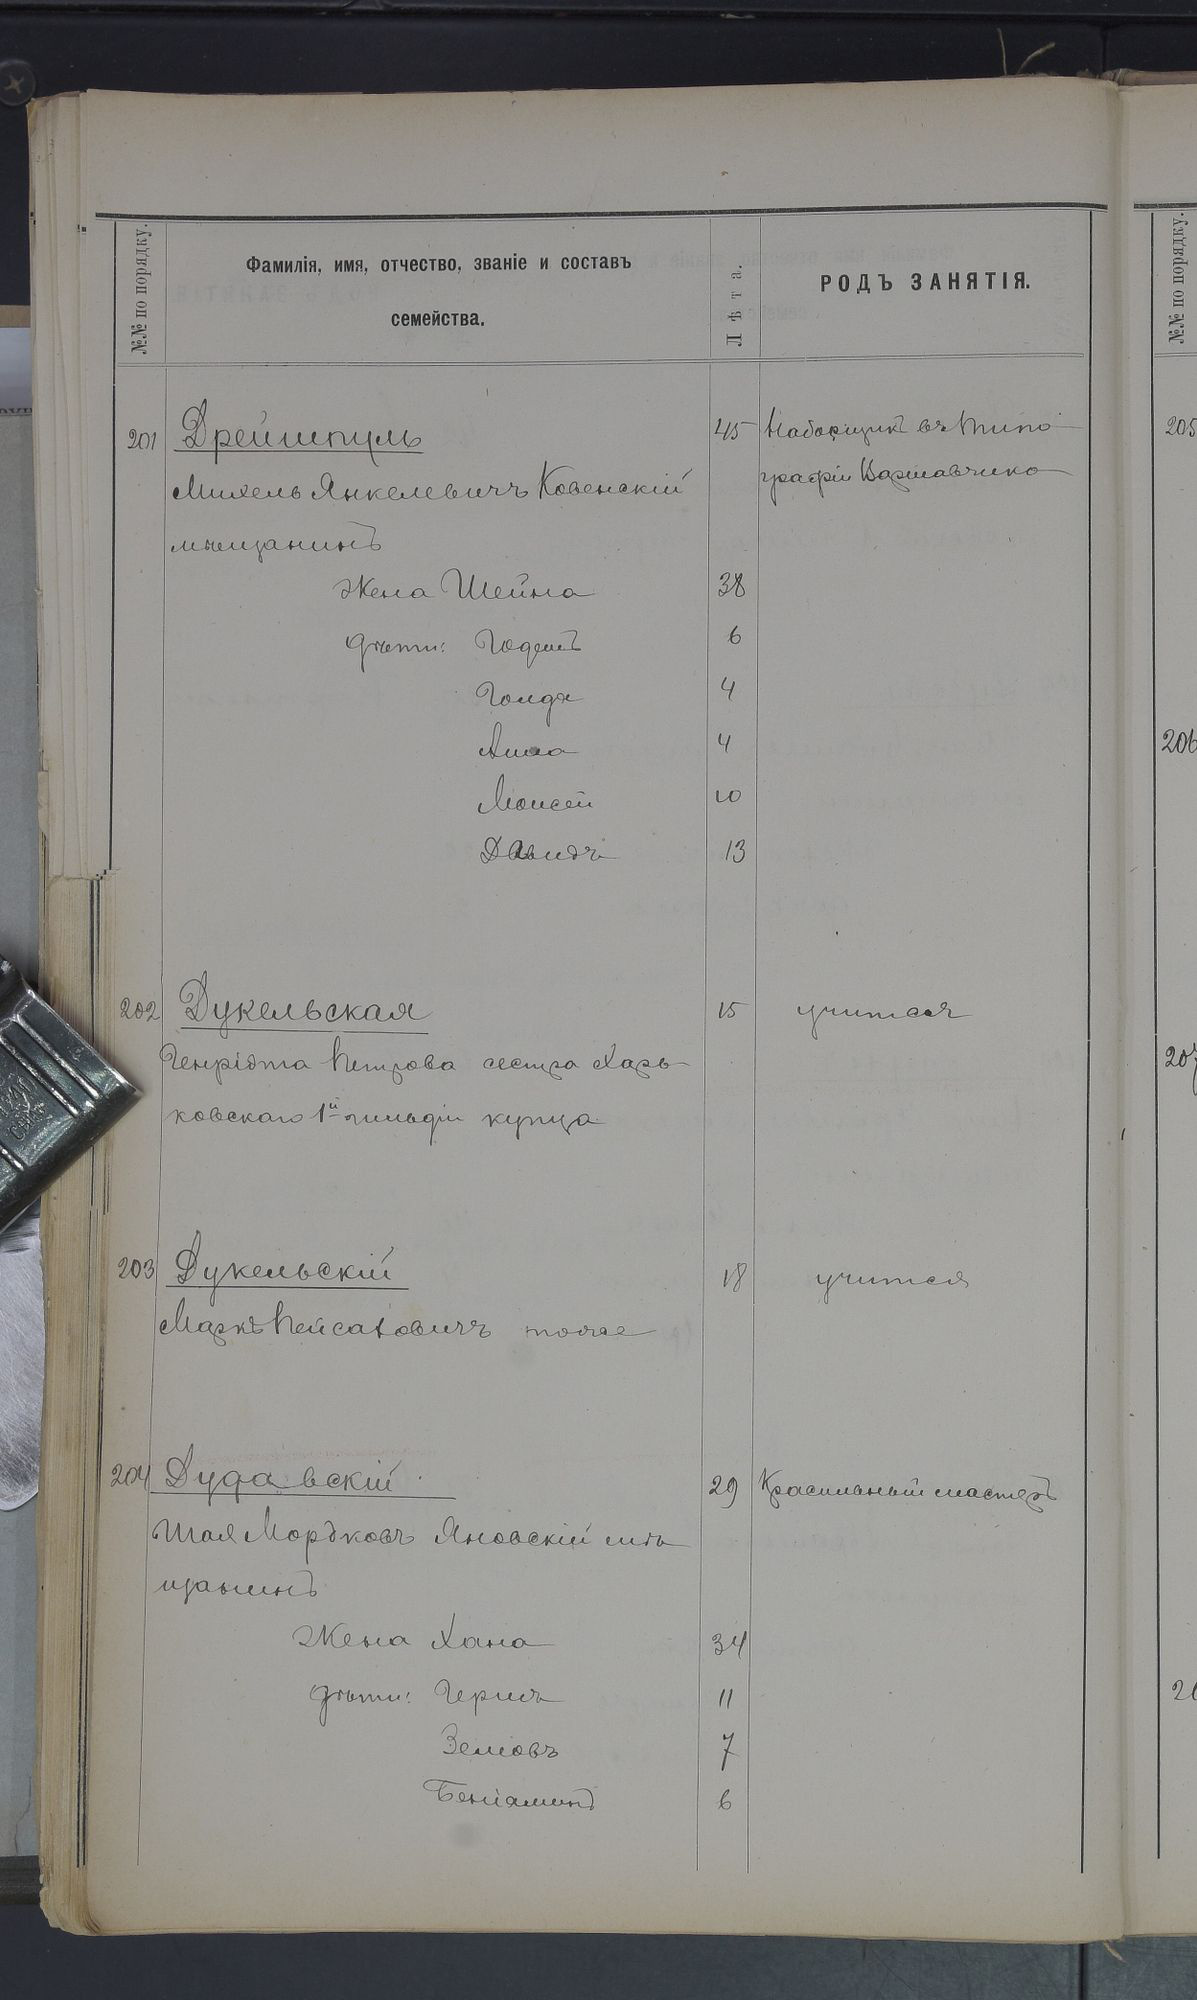 №№ по порядку.
Фамилія, имя, отчество, званіе и составъ
семейства.
Лѣта.
РОДЪ ЗАНЯТІЯ.
201 Дрейшпуль 45 Наборщикъ въ типо-
Михель Янкелевичъ Ковенскій графіи Варшавчика
мѣщанинъ
Жена Шейна 38
дѣти: 6
Голда 4
4
Моисей 10
Давидъ 13
202 Дукельская 15 учится
Генріэтта Петрова сестра Харь-
ковскаго 1й гильдіи купца
203 Дукельскій 18 учится
Маркъ Пейсаховичъ тоже
204 Дудавскій 29 Красильный мастеръ
Шая Мордковъ Яновскій мѣ-
щанинъ
Жена Хана 34
дѣти: Гершъ 11
7
Беніаминъ 6
№№ по порядку.
205
206
207